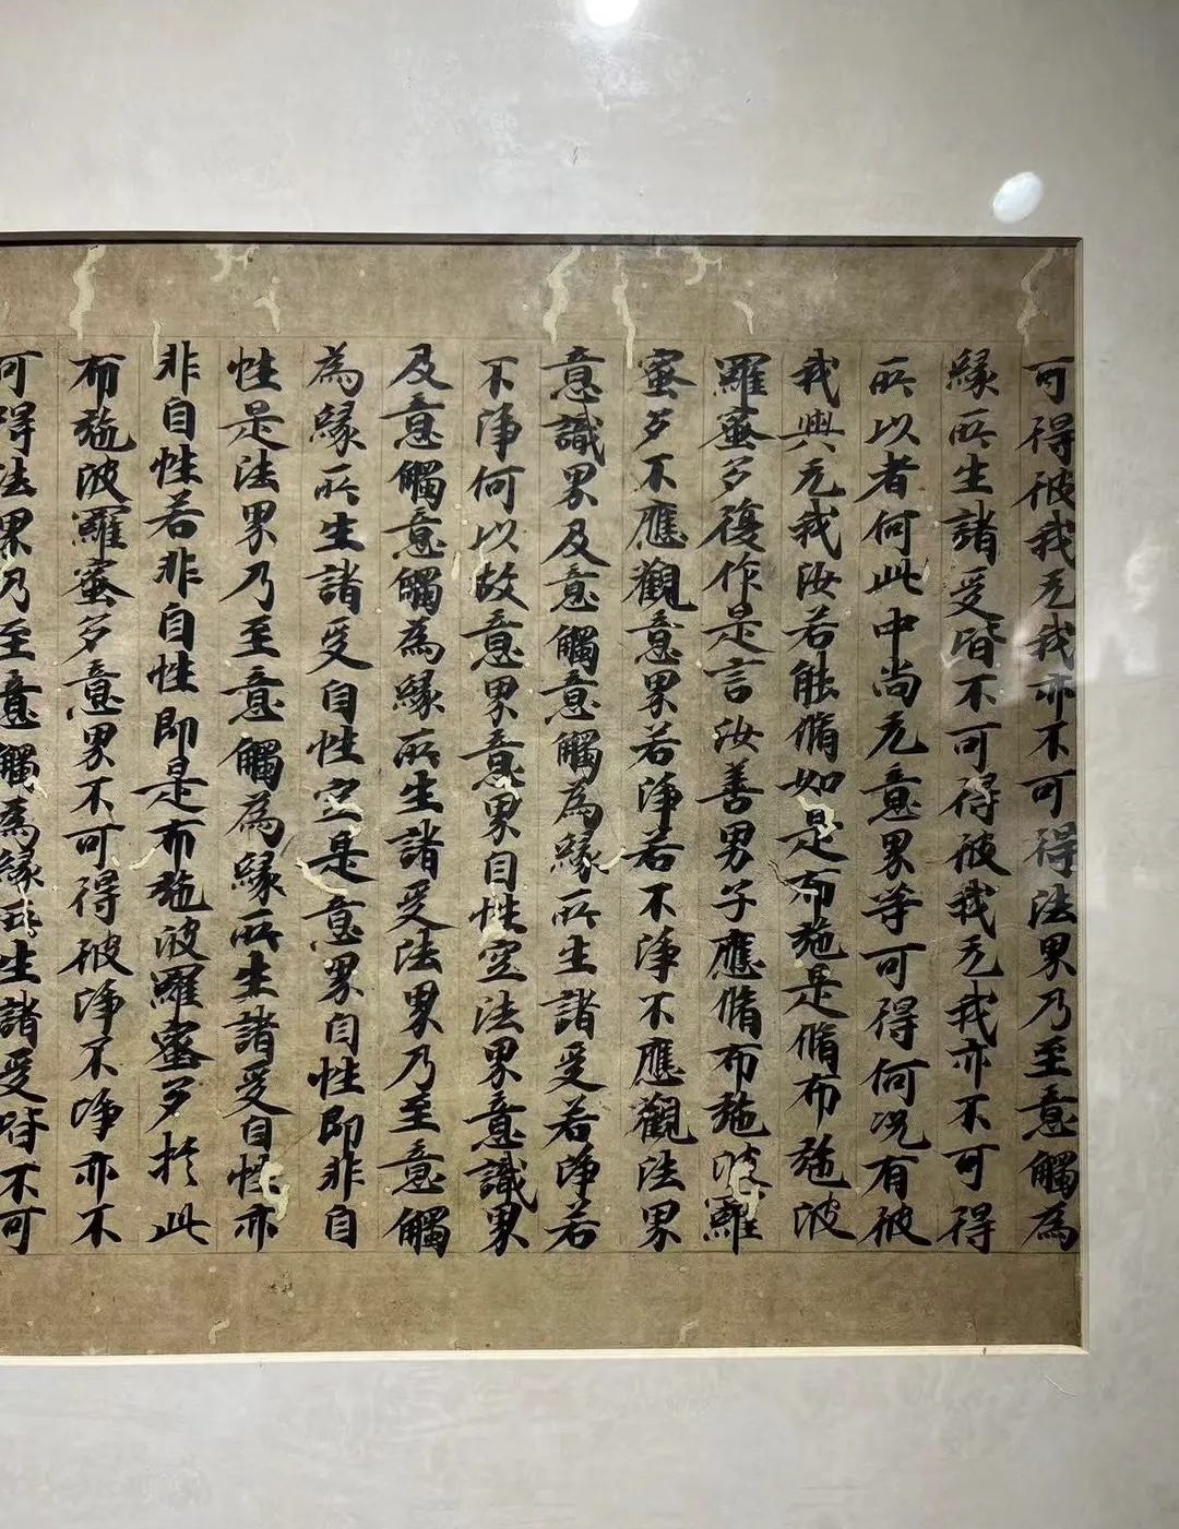 可得彼我无我亦不可得法界乃至意觸為
緣所生諸受皆不可得彼我无我亦不可得
所以者何此中尚无意界等可得何况有彼
我與无我汝若能脩如是布施是脩布施波
羅蜜多復作是言汝善男子應脩布施波羅
蜜多不應觀意界若淨若不淨不應觀法界
意識界及意觸意觸為緣所生諸受若淨若
不淨何以故意界意界自性空法界意識界
及意觸意觸為緣所生諸受法界乃至意觸
為緣所生諸受自性空是意界自性即非自
性是法界乃至意觸為緣所生諸受自性亦
非自性若非自性即是布施波羅蜜多於此
布施波羅蜜多意界不可得彼淨不淨亦不
可得法界乃至意觸為緣所生諸受皆不可